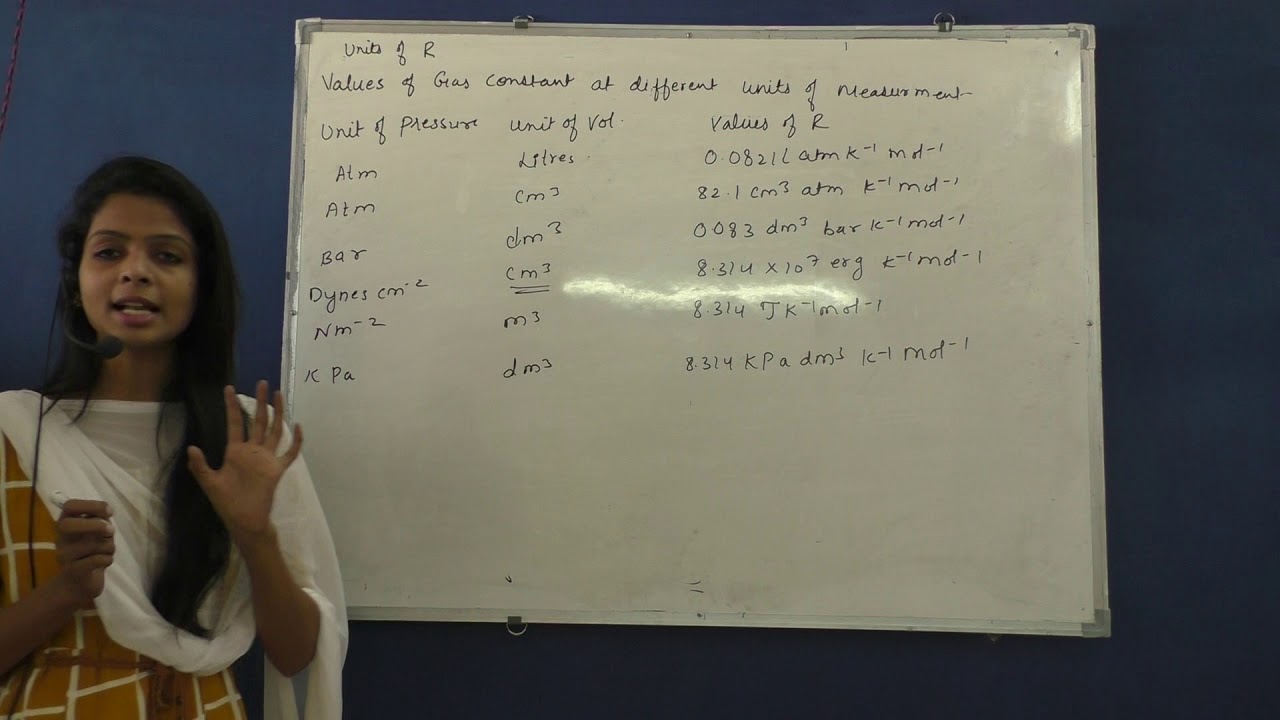 Units of R
Values of Gas constant at different units of Measurment
Unit of Pressure Unit of Vol. Values of R
Atm Litres 0.0821L atm K⁻¹ mol⁻¹
Atm cm³ 82.1 cm³ atm K⁻¹ mol⁻¹
Bar dm³ 0.083 dm³ bar K⁻¹ mol⁻¹
Dynes cm⁻² cm³ 8.314 × 10⁷ erg K⁻¹ mol⁻¹
Nm⁻² m³ 8.314 J K⁻¹ mol⁻¹
K Pa dm³ 8.314 K Pa dm³ K⁻¹ mol⁻¹